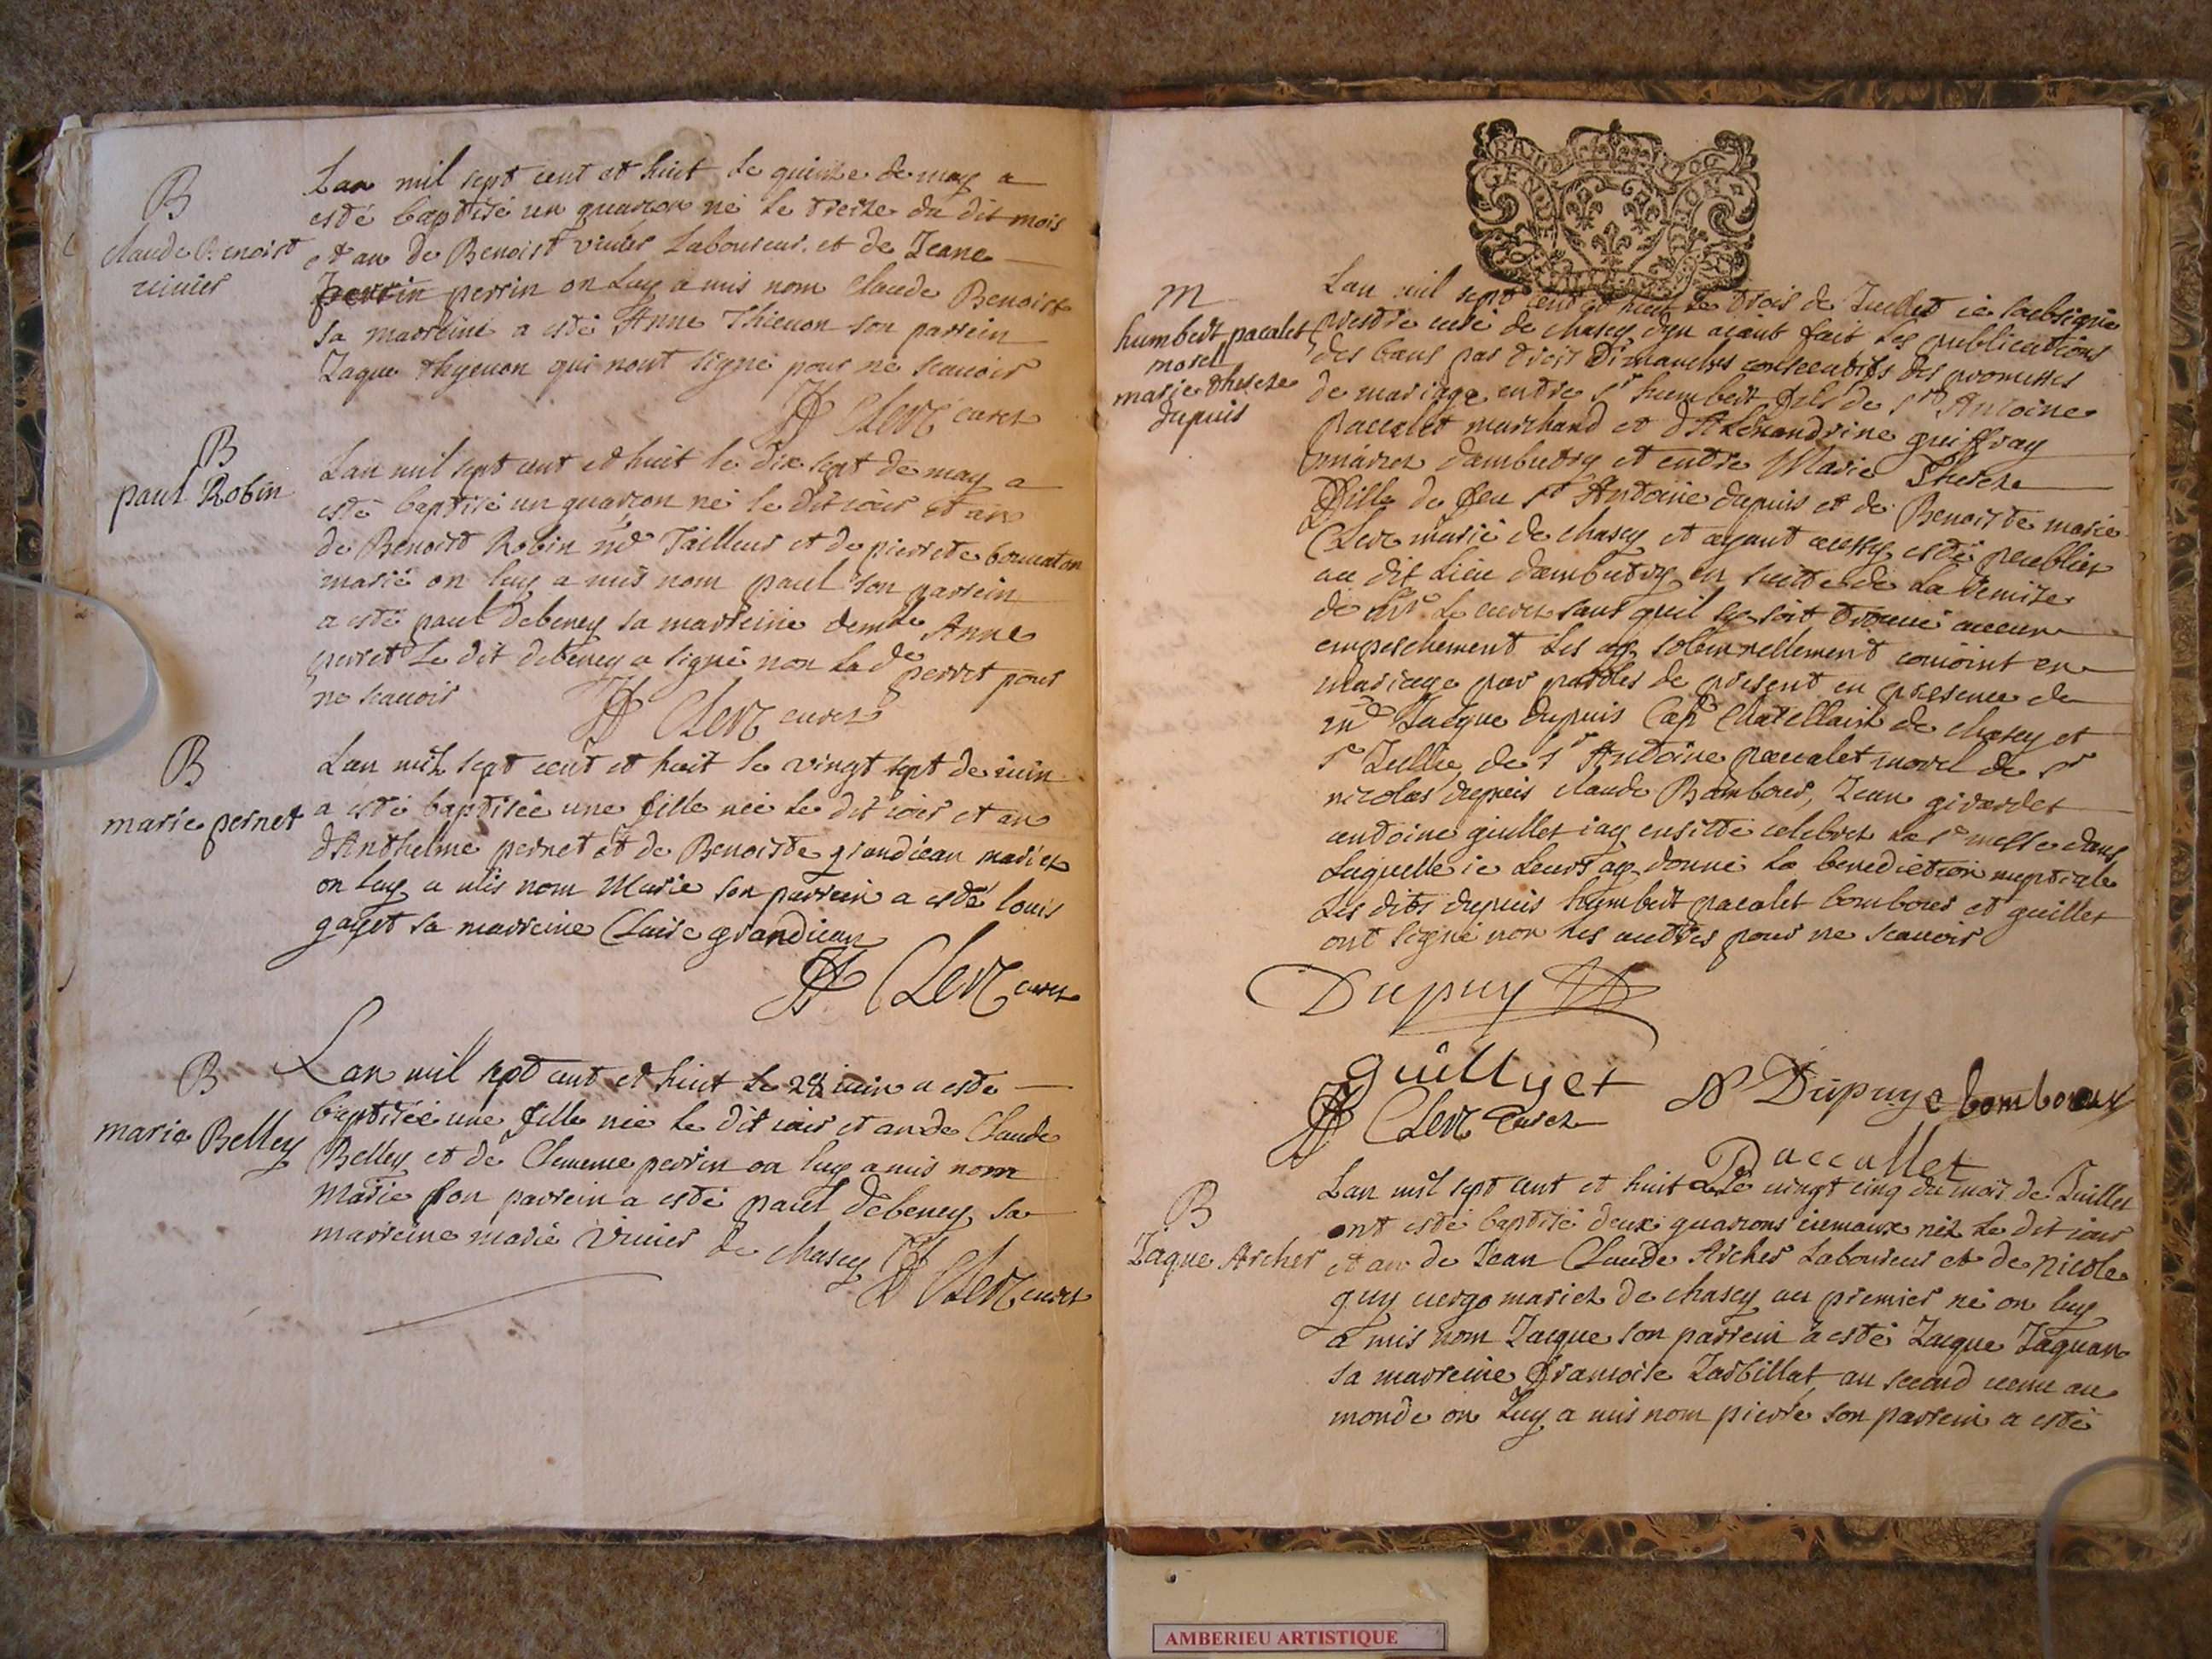 B
claude Benoist
vivier
Lan mil sept cent et huit le quinze de may a
esté baptisé un guarcon né le treize du dit mois
et an de Benoist vivier Laboureur et de Jeane
perrin perrin on luy a mis nom Claude Benoist
sa marreine a esté Anne Thienon son parrein
Jaque thyenon qui nont signé pour ne scauoir
Clerc curez
B
paul Robin
Lan mil sept cent et huit le dix sept de may a
esté baptisé un guarcon né le dit iour et an
de Benoist Robin md Tailleur et de pierrete
marié on luy a mis nom paul son parrein
a esté paul debeney sa marreine demlle Anne
perret Le dit debeney a signé non la dlle perret pour
ne scauoir
Clerc curez
B
marie pernet
Lan mil sept cent et huit le vingt sept de iuin
a esté baptisée une fille née le dit iour et an
dAnthelme pernet et de Benoiste grandiean mariez
on luy a mis nom Marie son parrein a esté louis
gayet sa marreine Claire grandiean
Clerc curez
B
marie Belley
Lan mil sept cent et huit le 28 iuin a esté
baptisée une fille née le dit iour et an de Claude
Belley et de Clemence perrin on luy a mis nom
Marie son parrein a esté paul debeney sa
marreine marie vivier de chasey
Clerc curez
GEN
m
humbert pacalet
morel
marie therese
dupuis
Lan mil sept cent et huit le trois de Juillet ie soubsigné
prestre curé de chasey dyn ayant fait les publications
des bans par trois Dimanches consecutifs des promesses
de mariage entre sr humbert fils de sr Antoine
paccalet marchand et dAlexandrine guiffray
mariez dambutry et entre Marie Therese
fille de feu sr Antoine dupuis et de Benoiste marie
Clerc marié de chasey et ayant aussy esté peublier
au dit Lieu dambutry en suitte de La Remise
de Mr Le curez sans quil se soit trouué aucun
empeschement Les ay solemnellement conioint en
mariage par parolles de present en presence de
md Jacque dupuis Capne Chatellain de chasey et
sr de sr Antoine paccalet morel de sr
nicolas dupuis claude Bambour, Jean girardet
antoine guillet iay ensuitte celebrez La ste messe dans
Laquelle ie Leurs ay donné La benediction nuptiale
Les dits dupuis humbert pacalet bombour et guillet
ont signé non les autres pour ne scauoir
Dupuy
guillyet
N Dupuy c bomboux
Clerc Curez
Paccallet
B
Jaque Archer
Lan mil sept cent et huit Le vingt cinq du mois de Juillet
ont esté baptisé deux guarcons iumaux néz Le dit iour
et an de Jean Claude Archer Laboureur et de nicole
guy mariez de chasey au premier né on luy
a mis nom Jacque son parrein a esté Jacque Jaquan
sa marreine francoise Jarbillat au second venu au
monde on Luy a mis nom pierre son parrein a esté
AMBERIEU ARTISTIQUE